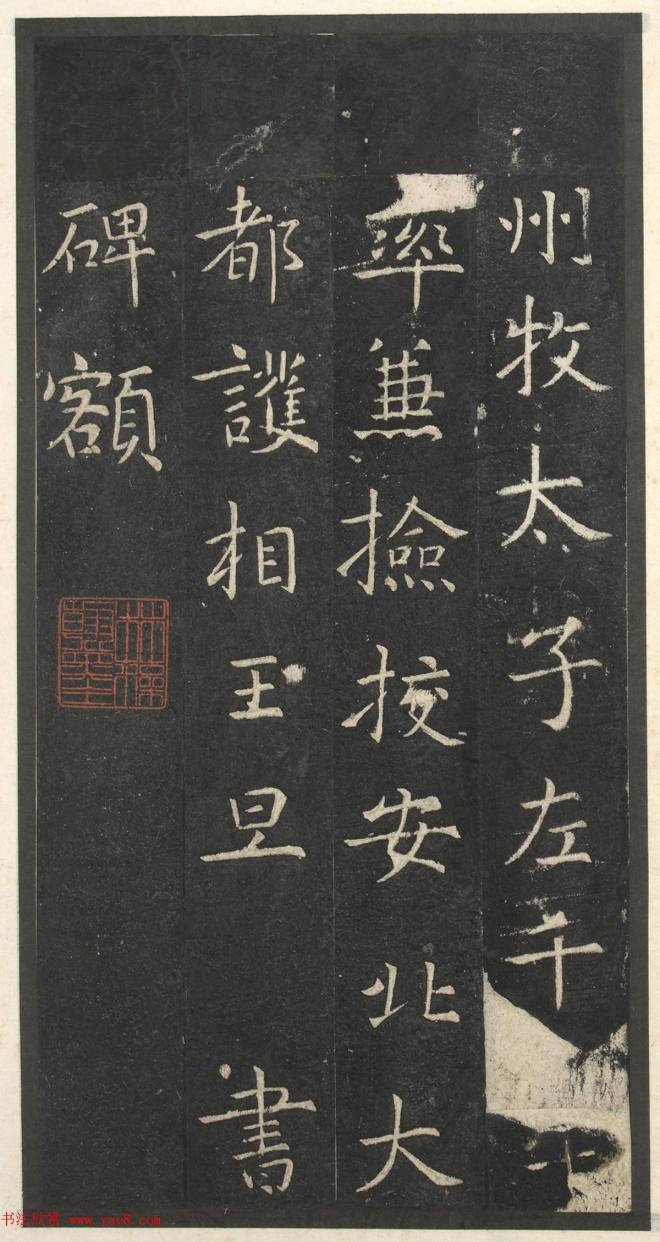 州牧太子左千
率兼撿挍安北大
都護相王旦 書
碑額
书法欣赏 www.yac8.com